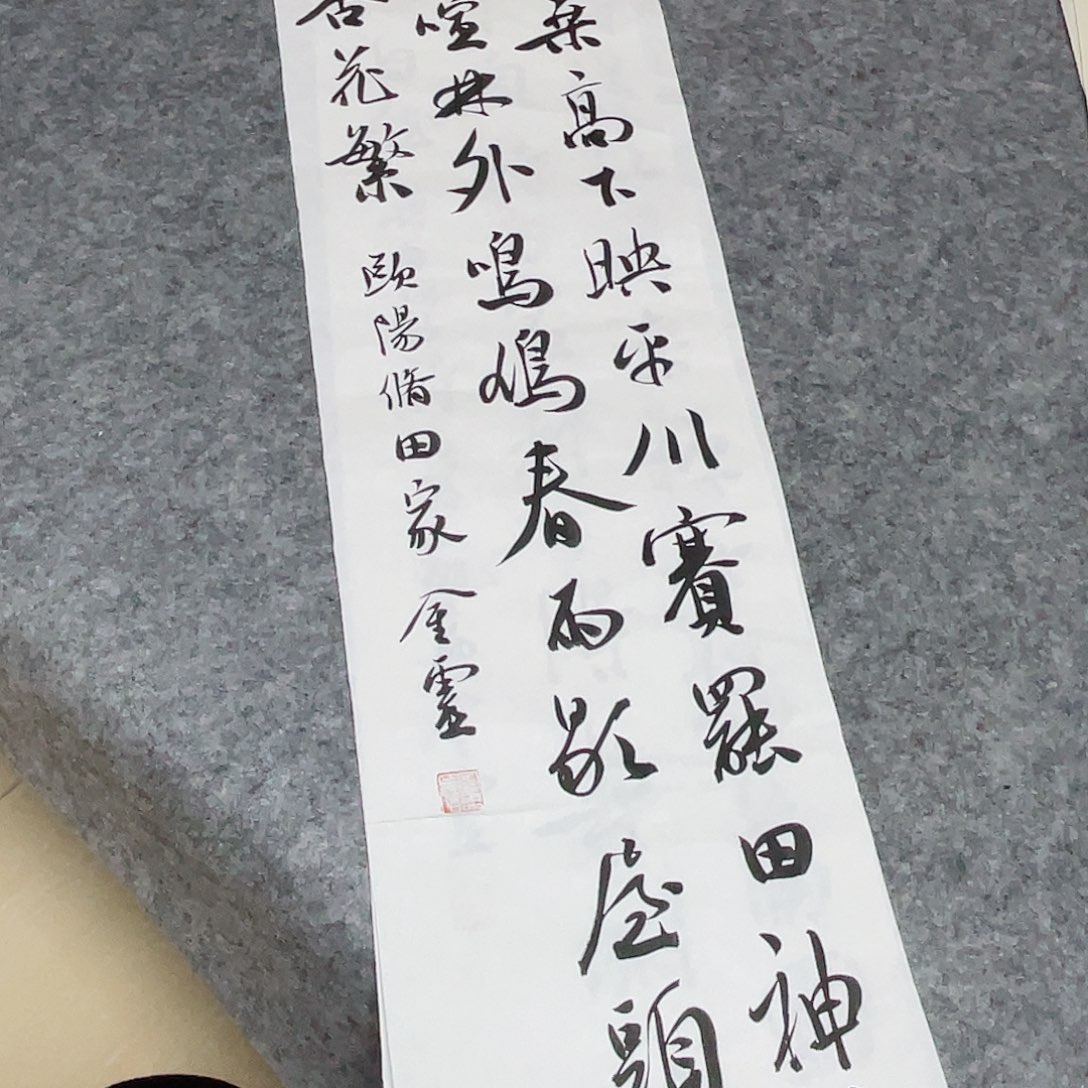 桑高下映平川賽罷田神
喧林外鳴鳩春雨歇屋頭
杏花繁
歐陽脩田家 金靈